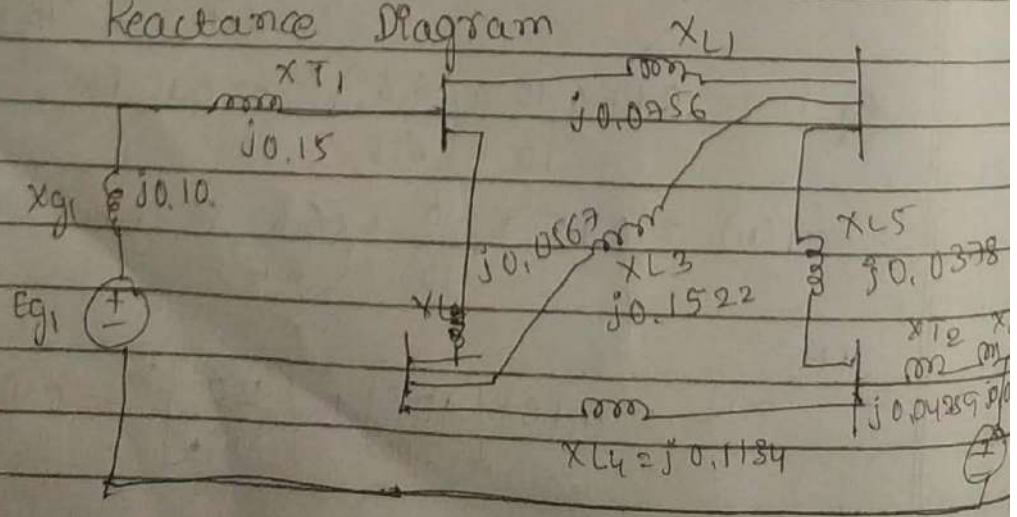 Reactance Diagram
XL1
XT1
j0.0756
j0.15
Xg1 j0.10.
j0.0567
XL5
XL3
j0.0378
j0.1522
Eg1
+
-
XT2
XL4 = j0.1134
+